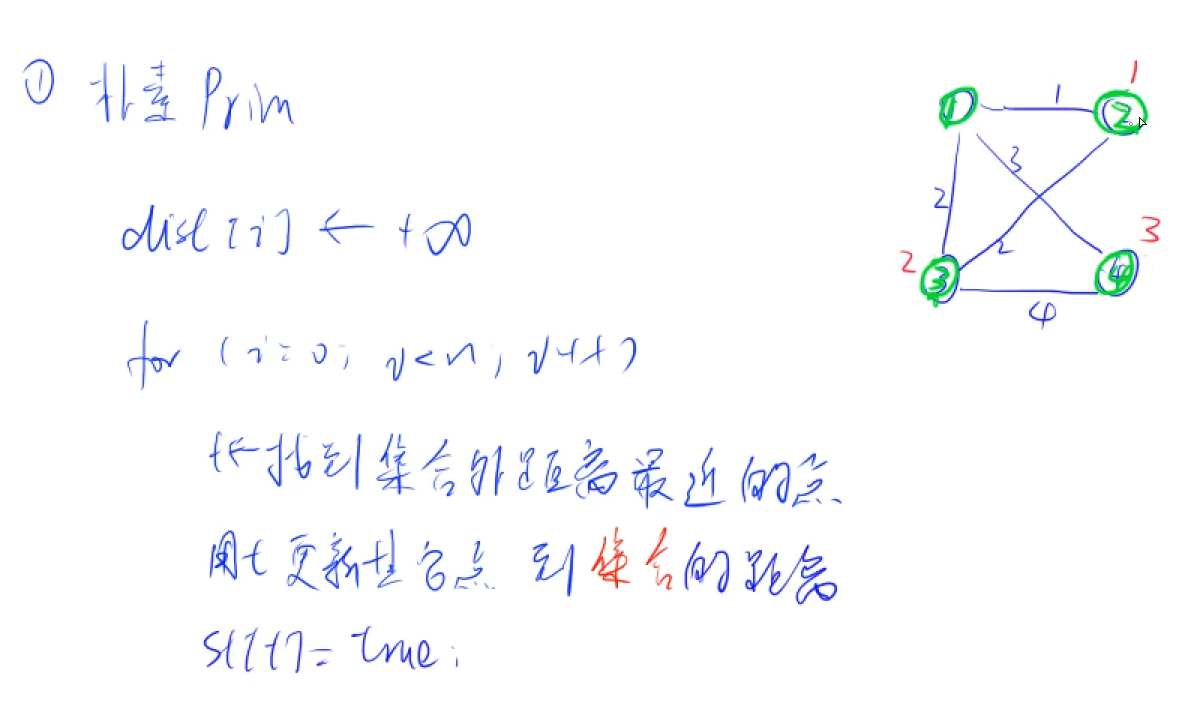 ① 朴素 Prim
dist[i] ← +∞
for (i=0; i<n; i++)
t←找到集合外距离最近的点
用t更新其它点到集合的距离
st[t]=true;
1
① 1 ②
3
2
3
2 ③ 2 ④
4